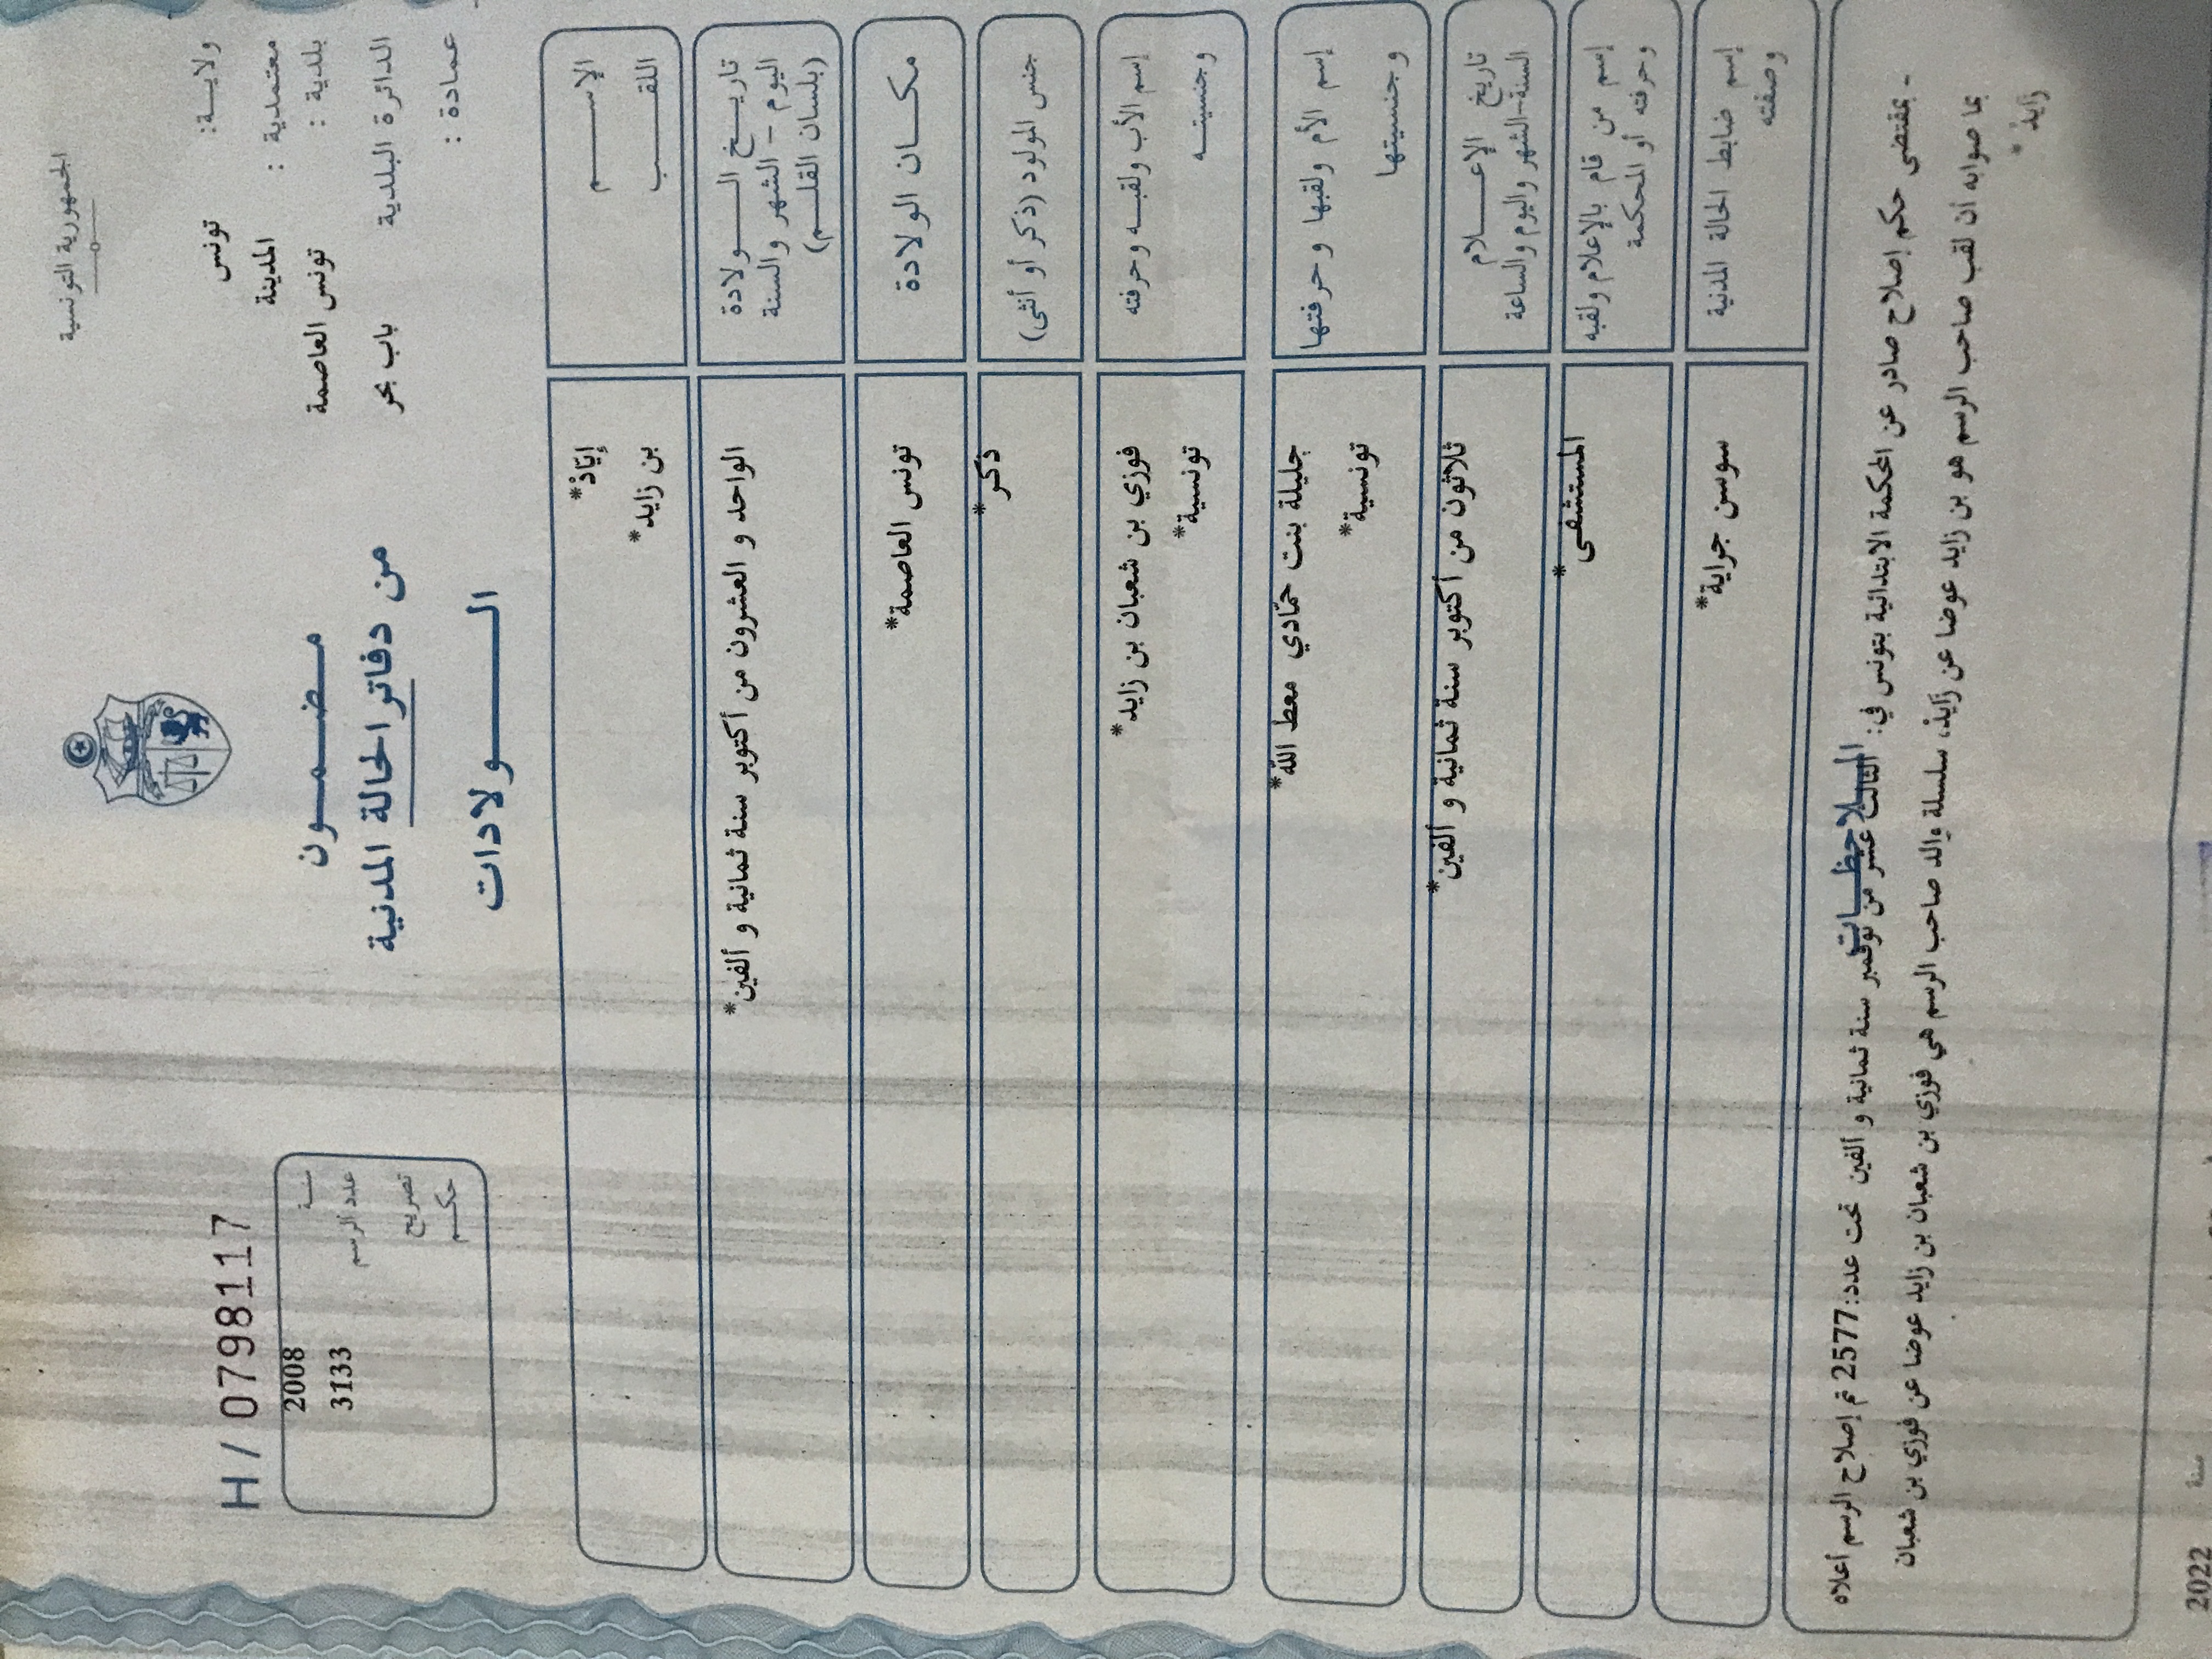 الجمهورية التونسية
ولايـة: تونس
معتمدية : المدينة
بلدية : تونس العاصمة
الدائرة البلدية باب بحر
عمادة :
مـضـمـون
من دفاتر الحالة المدنية
الـولادات
H / 0798117
سنـة 2008
عدد الرسم 3133
تصريح
حكـم
الإسـم إيّاد*
اللقـب بن زايد*
تاريـخ الـولادة الواحد و العشرون من أكتوبر سنة ثمانية و ألفين*
اليوم - الشهر والسنة
(بلسان القلـم)
مكـان الولادة تونس العاصمة*
جنس المولود (ذكر أو أنثى) ذكر*
إسم الأب ولقبـه وحرفته فوزي بن شعبان بن زايد*
وجنسيتـه تونسية*
إسم الأم ولقبها وحرفتها جليلة بنت حمّادي معط الله*
وجنسيتها تونسية*
تاريخ الإعـلام ثلاثون من أكتوبر سنة ثمانية و ألفين*
السنة-الشهر واليوم والساعة
إسم من قام بالإعلام ولقبه المستشفى*
وحرفته أو المحكمة
إسم ضابط الحالة المدنية سوسن جراية*
وصفته
الملاحظـات
- بمقتضى حكم إصلاح صادر عن المحكمة الابتدائية بتونس في: الثالث عشر من نوفمبر سنة ثمانية و ألفين تحت عدد:2577 تم إصلاح الرسم أعلاه
بما صوابه أن لقب صاحب الرسم هو بن زايد عوضا عن زايد، سلسلة والد صاحب الرسم هي فوزي بن شعبان بن زايد عوضا عن فوزي بن شعبان
زايد*
سنة 2022